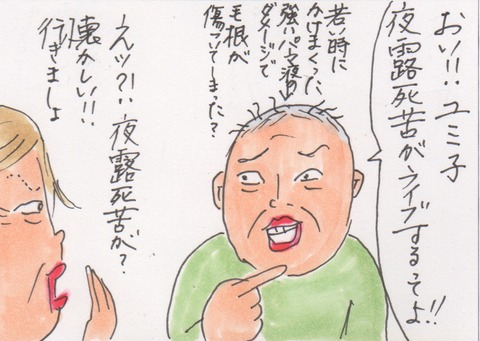 おい!!ユミ子
夜露死苦がライブするってよ!!
若い時に
かけまくった
強いパーマ液の
ダメージで
毛根が
傷ついてしまった?
えッ?!!夜露死苦が?
懐かしい!!
行きましょ